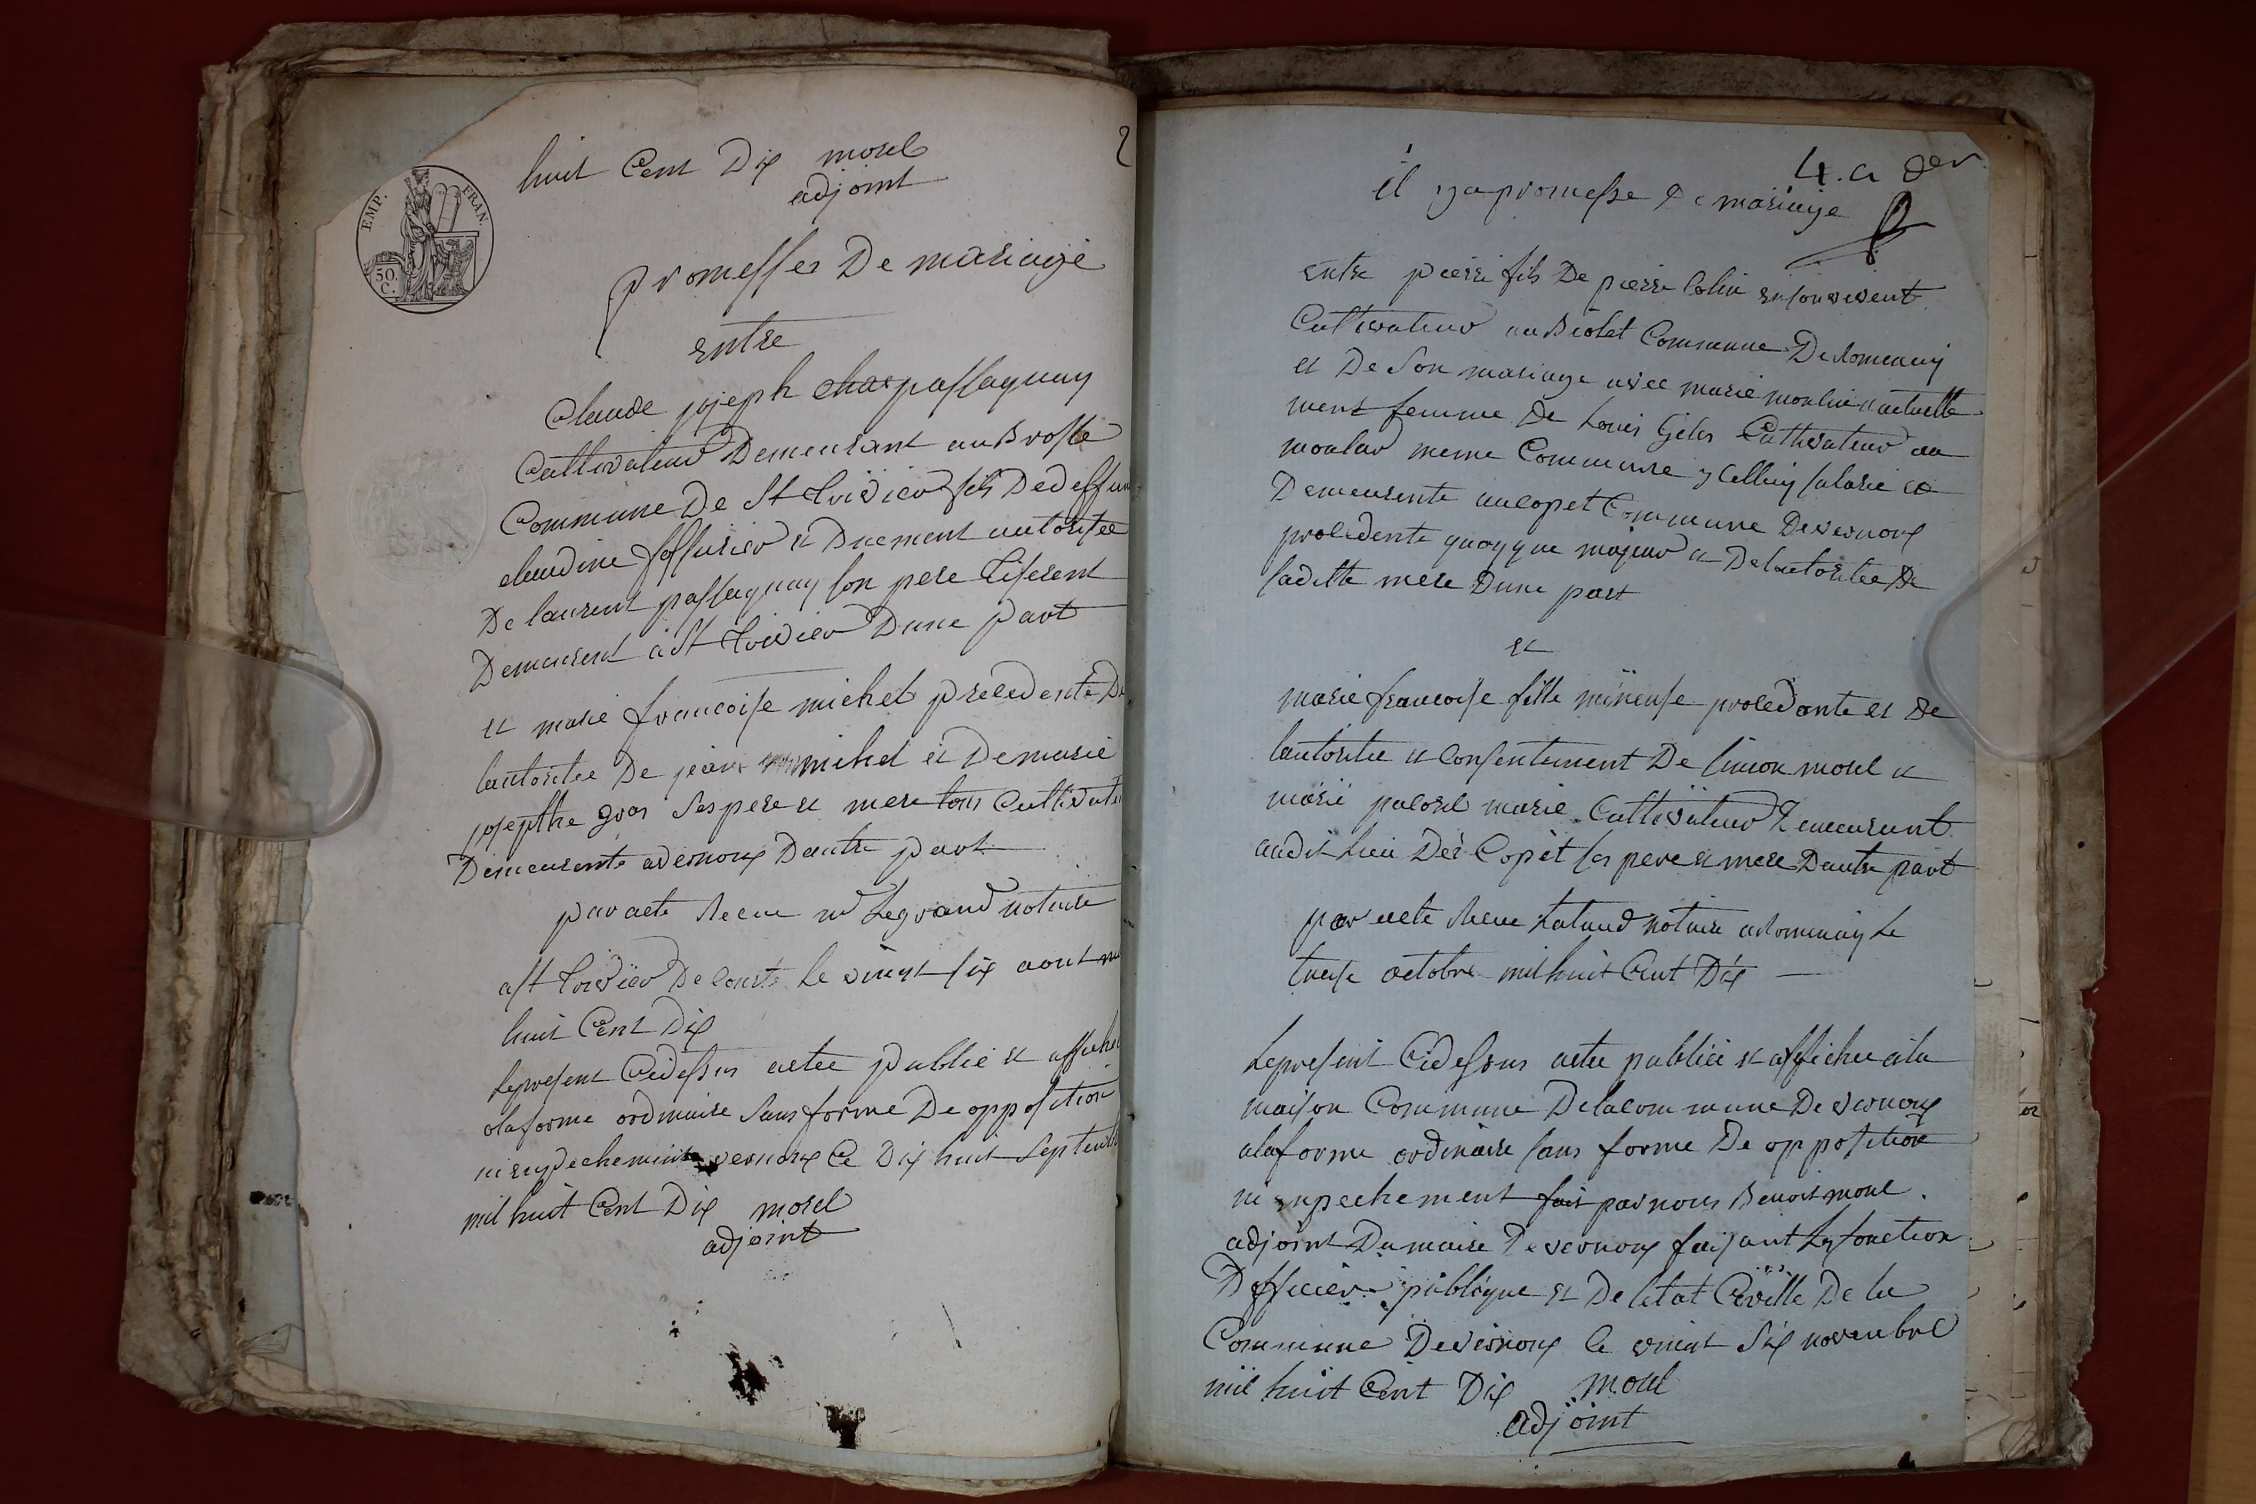 2
EMP. FRAN.
50.
C.
huit Cent Dix morel
adjoint
promesses De mariage
entre
Claude joseph passaquay
Cultivateur Demeurant au Brosse
Commune De St trivier fils Dedeffun
claudine et Duement autorisee
De laurent passaquay son pere
Demeurent a St trivier Dune part
et marie francoise michel procedente De
lautoritee De jean michel et De marie
josepthe gros Ses pere et mere tous Cultivate
Demeurents a vernoux Dautre part
par acte Recue Legrand notaire
a St trivier De Courts Le vingt six aout mil
huit Cent Dix
Lepresent Cidessus actee publié et affiché
alaforme ordinaire Sans forme De oppositiön
ni enpechement vernoux Ce Dix huit Septembre
mil huit Cent Dix morel
adjoint
4. a
il ya promesse De mariage
entre pierre fils De pierre Colin
Cultivateur au Biolet Commune De Romenay
et De Son mariage avec marie moulin actuelle
ment femme De Louis Cultivateur au
meme Commune y Celluy salarie et
Demeurente au copet Commune De vernoux
procedente quoyque majeur et De lautoritee De
saditte mere Dune part
et
marie francoise fille mineuse procedante et De
lautoritee et Consentement De simeon morel et
marie marie Cultivateur Demeurant
audit Lieu Des Copet ses pere et mere Dautre part
par acte Recue notaire a Romenay Le
treise octobre mil huit Cent Dix
Lepresent Cidessus actee publiée et affichee ala
maison Commune Delacommune De vernoux
alaforme ordinaire sans forme De opposition
ni enpechement fait par nous Benoit morel
adjoint Du maire De vernoux faisant Les fonction
Dofficier publique et De letat Civille De la
Commune De vernoux le vingt Six novembre
mil huit Cent Dix morel
adjoint